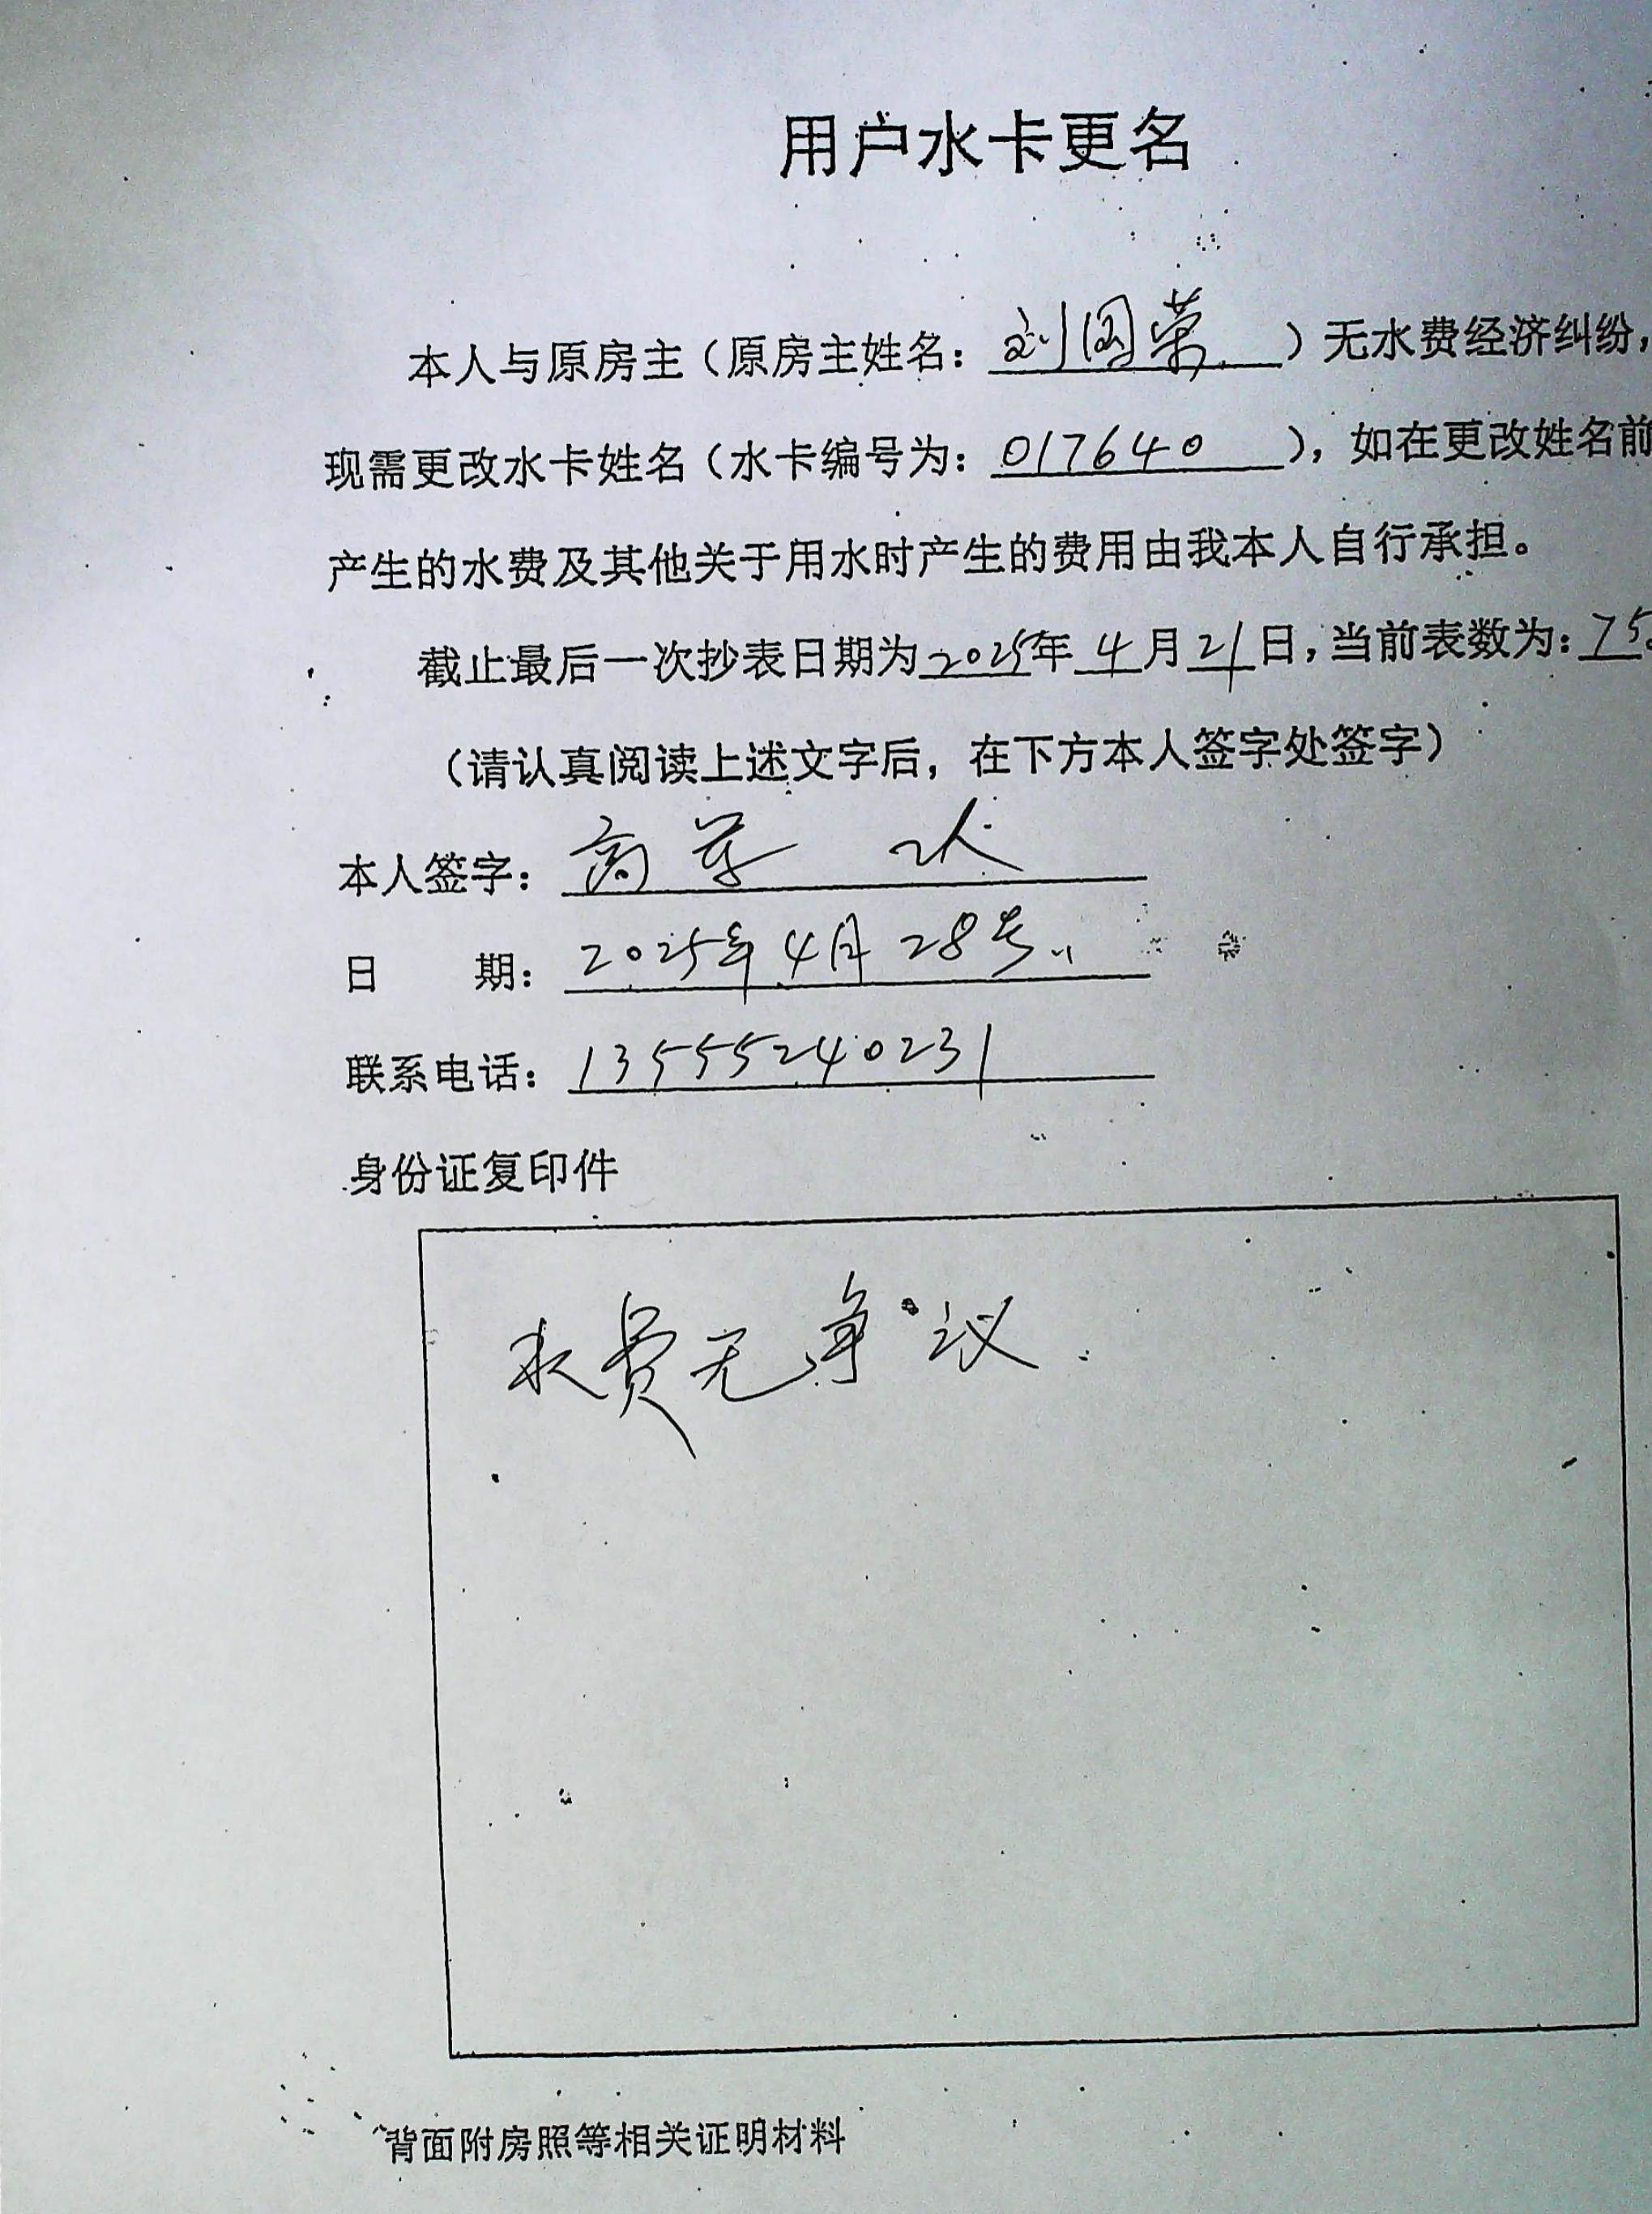 用户水卡更名
本人与原房主（原房主姓名：刘国荣）无水费经济纠纷，
现需更改水卡姓名（水卡编号为：017640），如在更改姓名前
产生的水费及其他关于用水时产生的费用由我本人自行承担。
截止最后一次抄表日期为2025年4月21日，当前表数为：75
（请认真阅读上述文字后，在下方本人签字处签字）
本人签字：高 2人
日 期：2025年4月28号
联系电话：13555240231
身份证复印件
水费无争议
背面附房照等相关证明材料